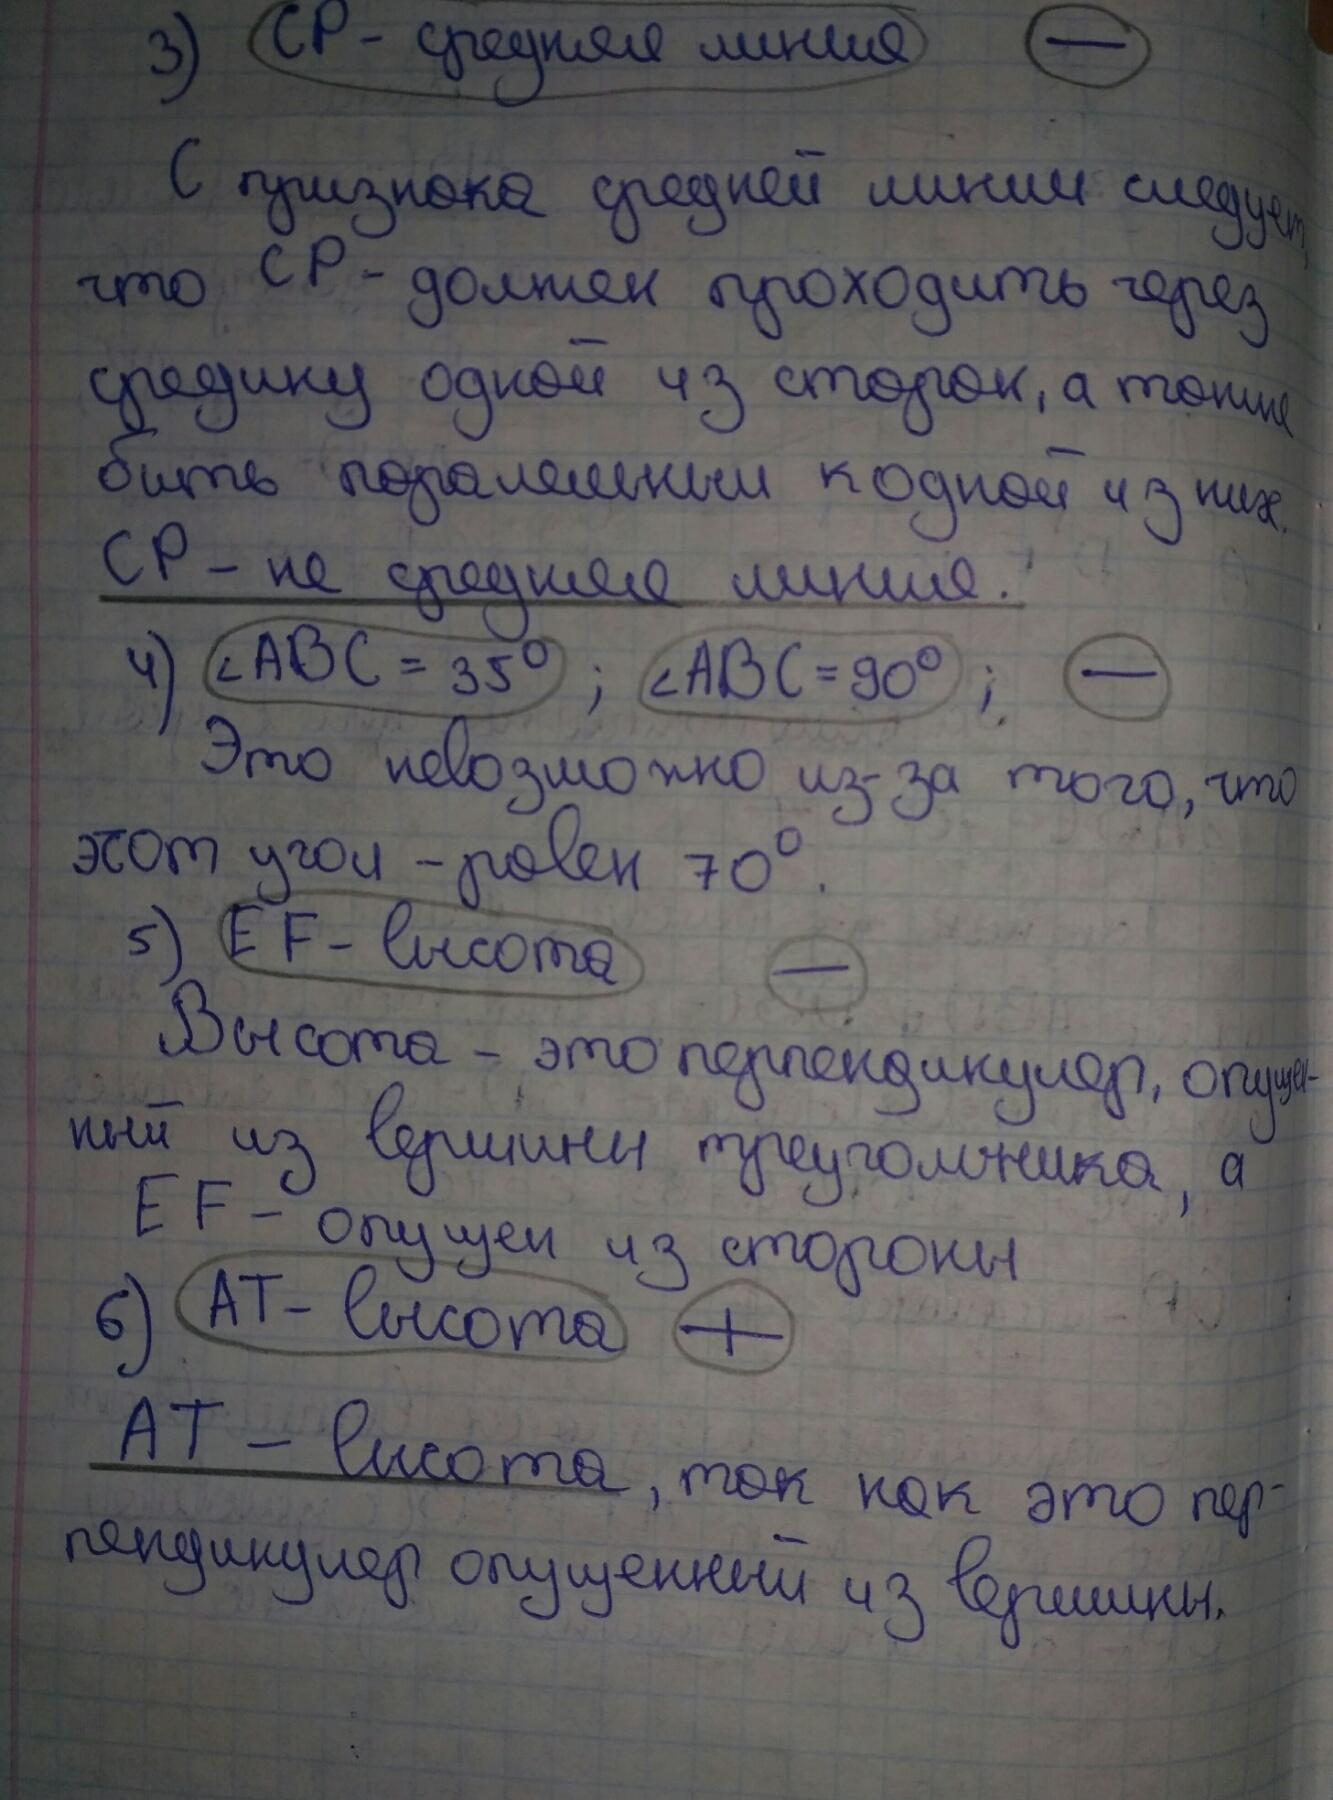 3) СР - средняя линия −
С признака средней линии следует,
что СР - должен проходить через
средину одной из сторон, а также
быть паралельным к одной из них.
СР - не средняя линия.
4) ∠ABC = 35° ; ∠ABC = 90° ; −
Это невозможно из-за того, что
этот угол - ровен 70°.
5) EF - высота −
Высота - это перпендикуляр, опущен-
ный из вершины треугольника, а
EF - опущен из стороны
6) AT - высота +
AT - высота, так как это пер-
пендикуляр опущенный из вершины.